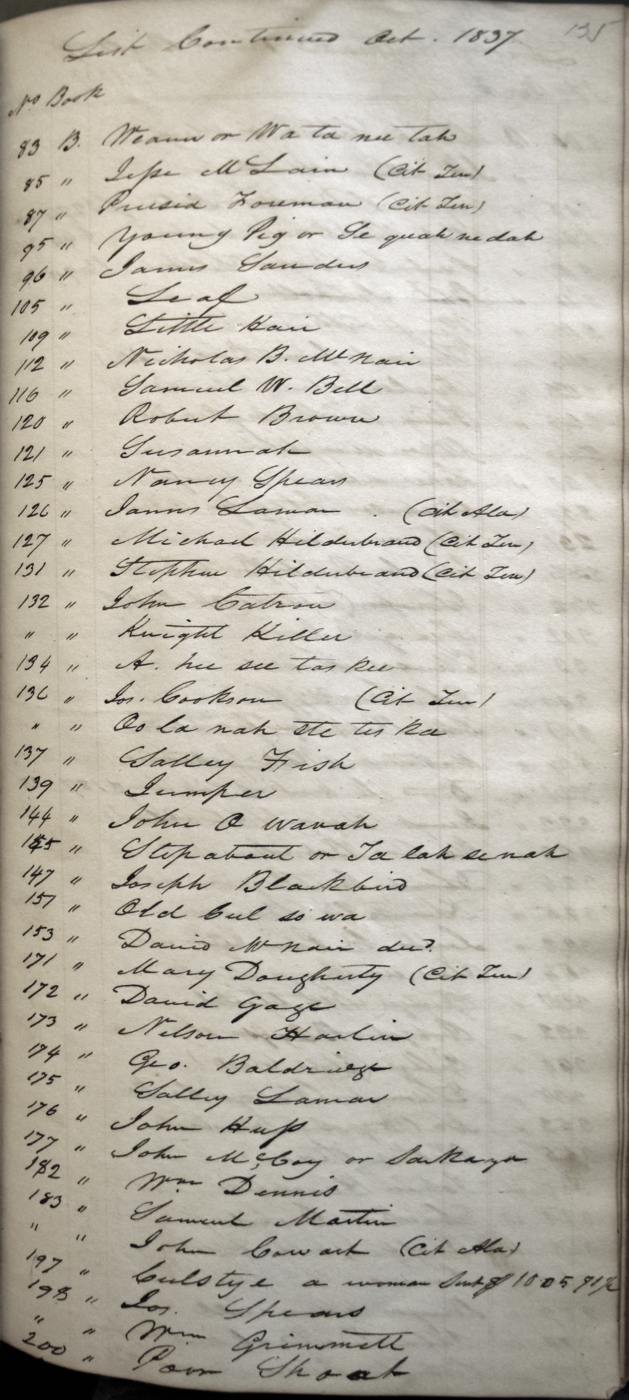 List Continued Oct. 1837 135
No Book
83 B. Weaver or Wa ta nee tah
85 " Jesse McLain (Cit Ten)
87 " Foreman (Cit Ten)
95 " Young Pig or Se quah ne dah
96 " James Sanders
105 " Leaf
109 " Little Hair
112 " Nicholas B. McNair
116 " Samuel W. Bell
120 " Robert Brown
121 " Susannah
125 " Nancy Spears
126 " James Lamar (Cit Ala)
127 " Michael Hilderbrand (Cit Ten)
131 " Stephen Hilderbrand (Cit Ten)
132 " John Catron
" " Knight Killer
134 " A. hee see tas kee
136 " Jos. Cookson (Cit Ten)
" " Oo la nah ste tes ka
137 " Salley Fish
139 " Jumper
144 " John O wavah
145 " Step about or Ta lah se nah
147 " Joseph Blackbird
151 " Old Cul so wa
153 " David McNair decd.
171 " Mary Dougherty (Cit Ten)
172 " David Gage
173 " Nelson Harlin
174 " Geo. Baldridge
175 " Salley Lamar
176 " John Huss
177 " John McCoy or
182 " Wm Dennis
183 " Samuel Martin
" " John Cowart (Cit Ala)
197 " Culstye a woman
198 " Jos. Spears
" " Wm Grimmett
200 " Poor Shoat